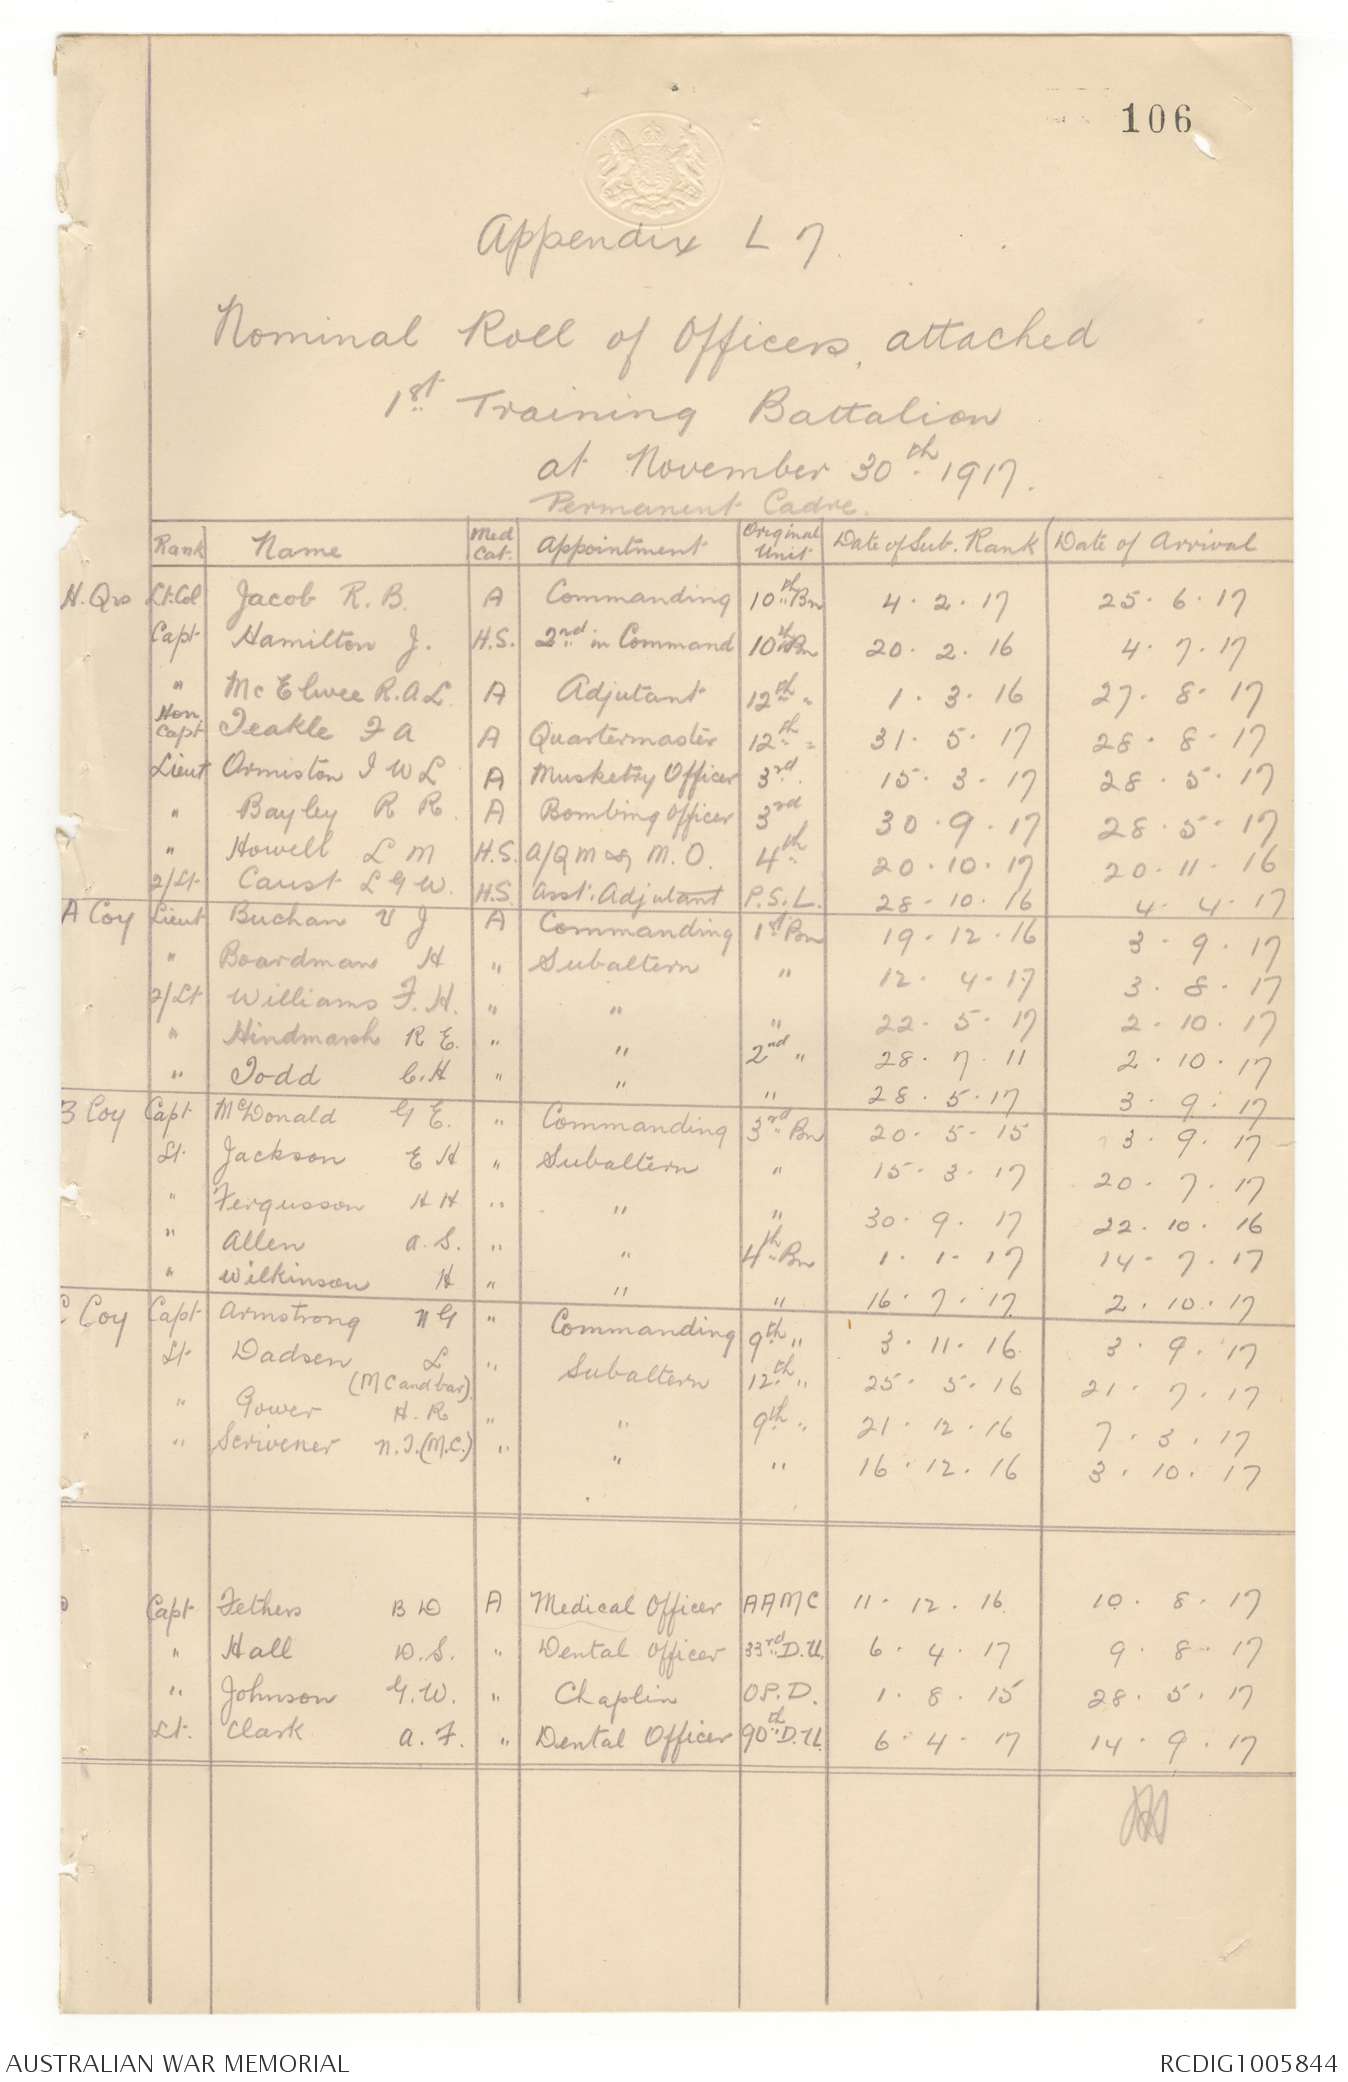 106
Appendix L 7.
Nominal Roll of Officers, attached
1st Training Battalion
at November 30th 1917.
Permanent Cadre.
Rank Name Med Cat. Appointment Original Unit Date of Sub. Rank Date of Arrival
H. Qrs Lt. Col Jacob R. B. A Commanding 10th Bn 4. 2. 17 25. 6. 17
Capt Hamilton J. H.S. 2nd in Command 10th Bn 20. 2. 16 4. 7. 17
" McElwee R. A. L. A Adjutant 12th " 1. 3. 16 27. 8. 17
Hon. Capt Teakle F A A Quartermaster 12th " 31. 5. 17 28. 8. 17
Lieut Ormiston I W L A Musketry Officer 3rd 15. 3. 17 28. 5. 17
" Bayley R R. A Bombing Officer 3rd 30. 9. 17 28. 5. 17
" Howell L M H.S. A/QM & M. O. 4th " 20. 10. 17 20. 11. 16
2/Lt Caust L G W. H.S. Asst. Adjutant P.S.L. 28. 10. 16 4. 4. 17
A Coy Lieut Buchan V J A Commanding 1st Bn 19. 12. 16 3. 9. 17
" Boardman H " Subaltern " 12. 4. 17 3. 8. 17
2/Lt Williams F. H. " " " 22. 5. 17 2. 10. 17
" Hindmarsh R E. " " 2nd " 28. 7. 11 2. 10. 17
" Todd C. H " " " 28. 5. 17 3. 9. 17
B Coy Capt McDonald G E. " Commanding 3rd Bn 20. 5. 15 3. 9. 17
Lt. Jackson E H " Subaltern " 15. 3. 17 20. 7. 17
" Fergusson H H " " " 30. 9. 17 22. 10. 16
" Allen A. S. " " 4th Bn 1. 1. 17 14. 7. 17
" Wilkinson H " " " 16. 7. 17. 2. 10. 17
C Coy Capt Armstrong N G " Commanding 9th " 3. 11. 16 3. 9. 17
Lt. Dadsen L (MC and bar) " Subaltern 12th " 25. 5. 16 21. 7. 17
" Gower H. R " " 9th " 21. 12. 16 7. 3. 17
" Scrivener N. I. (M.C.) " " " 16. 12. 16 3. 10. 17
Capt Fethers B D A Medical Officer AAMC 11. 12. 16 10. 8. 17
" Hall D. S. " Dental Officer 33rd D.U. 6. 4. 17 9. 8. 17
" Johnson G. W. " Chaplin OP. D. 1. 8. 15 28. 5. 17
Lt. Clark A. F. " Dental Officer 90th D.U. 6. 4. 17 14. 9. 17
AUSTRALIAN WAR MEMORIAL RCDIG1005844